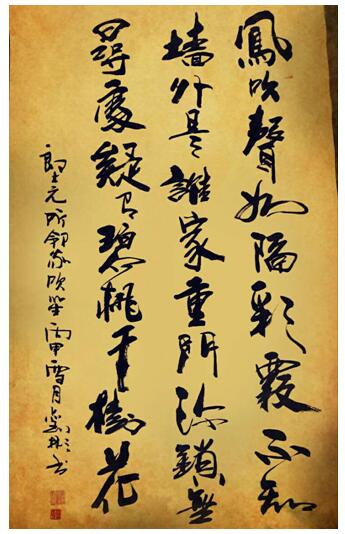 鳳吹聲如隔彩霞不知
墙外是誰家重門深鎖無
尋處疑有碧桃千樹花
郎士元听邻家吹笙丙申雪月书